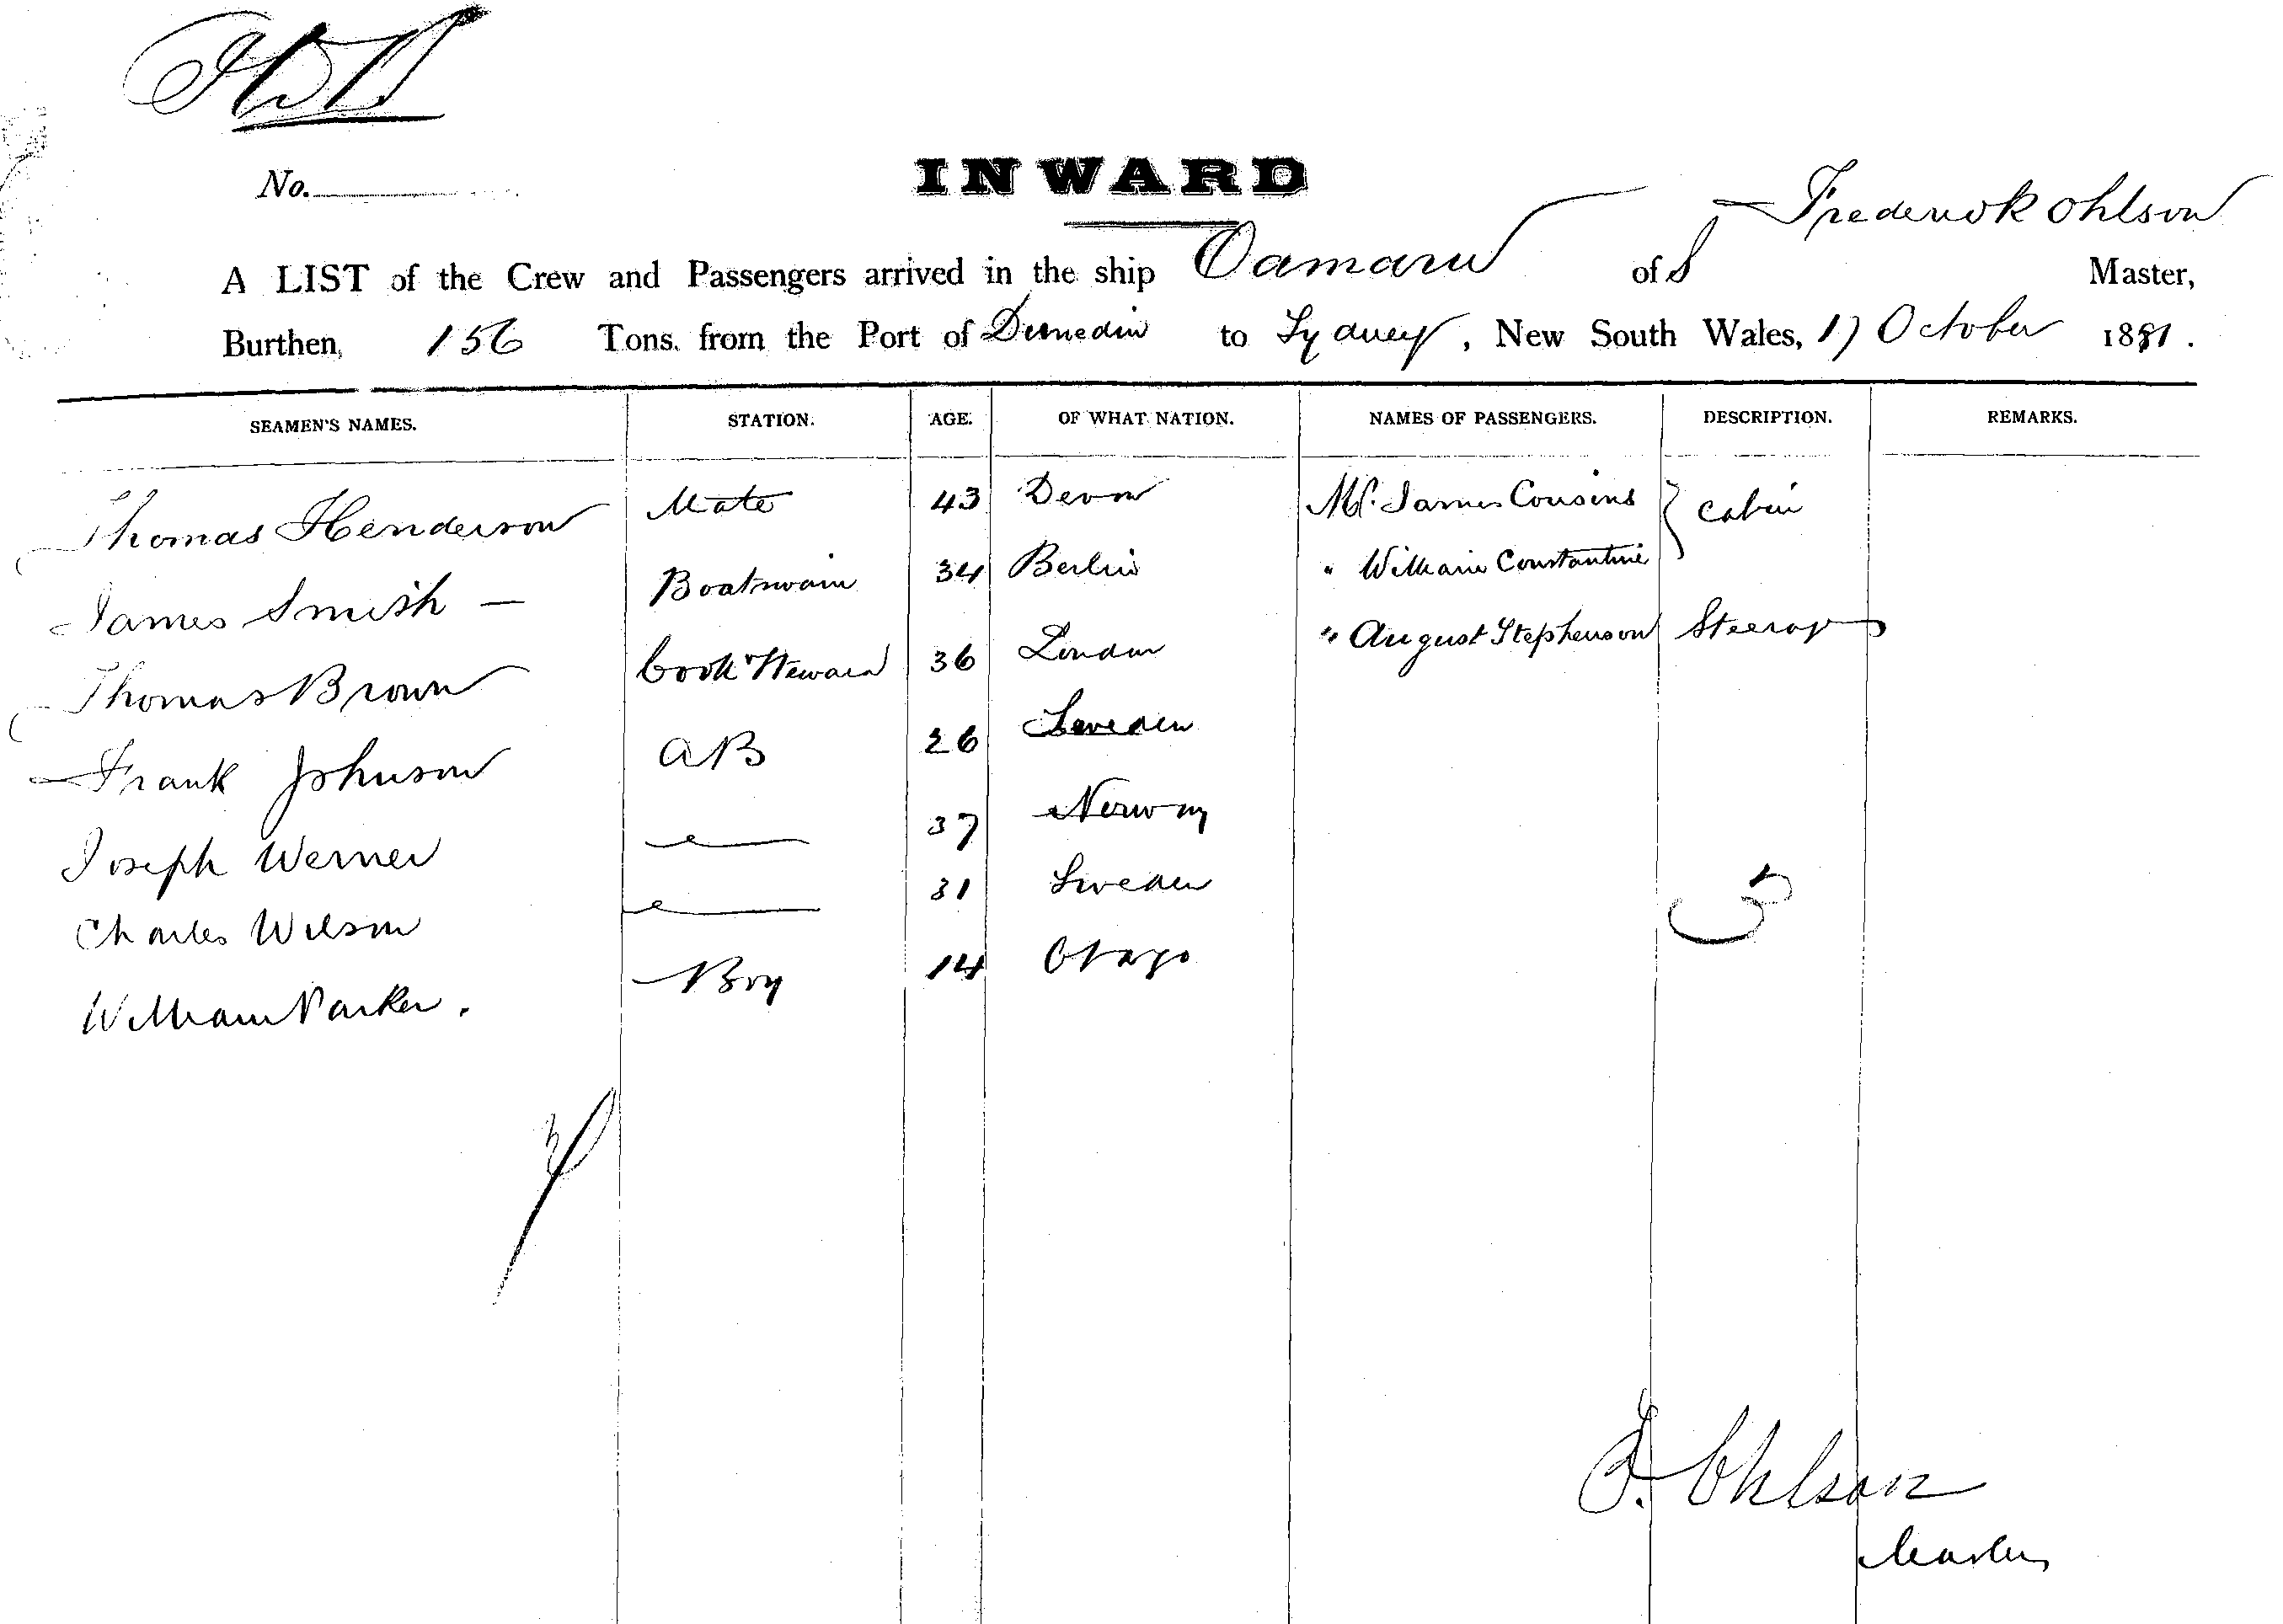 No.
INWARD
A LIST of the Crew and Passengers arrived in the ship Oamaru of S Frederick Ohlson Master,
Burthen, 156 Tons. from the Port of Dunedin to Sydney, New South Wales, 17 October 1881.
SEAMEN'S NAMES. STATION. AGE. OF WHAT NATION. NAMES OF PASSENGERS. DESCRIPTION. REMARKS.
Thomas Henderson Mate 43 Devon Mr. James Cousins } Cabin
James Smith — Boatswain 34 Berlin " William Constantine
Thomas Brown Cook & Steward 36 London " August Stephenson Steerage
Frank Johnson AB 26 Sweden
Joseph Werner 37 Norway
Charles Wilson 31 Sweden
William Parker. Boy 14 Otago
F. Ohlson
Master